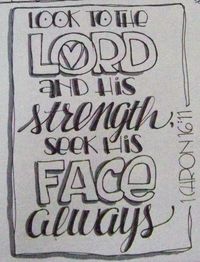 LOOK TO THE
LORD
AND HIS
strength;
SEEK HIS
FACE
always
1 CHRON 16:11